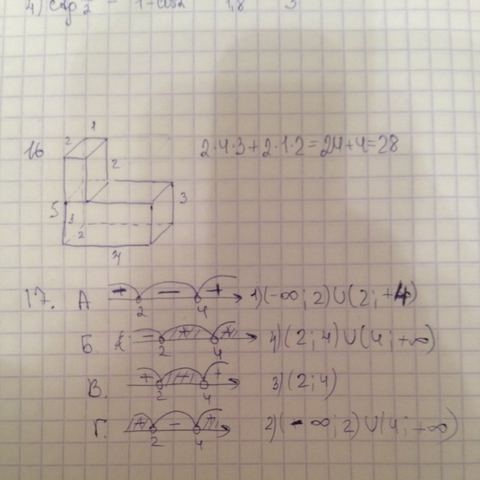 4) ctg α/2 = 1-cos2 1,8 3
16
2 1 2 5 3 2 3 4
2·4·3+2·1·2=24+4=28
17. А + - + 2 4 1)(-∞; 2)∪(2; +4)
Б. - + + 2 4 4)(2; 4)∪(4; +∞)
В. + + + 2 4 3)(2; 4)
Г. + - + 2 4 2)(-∞; 2)∪(4; +∞)